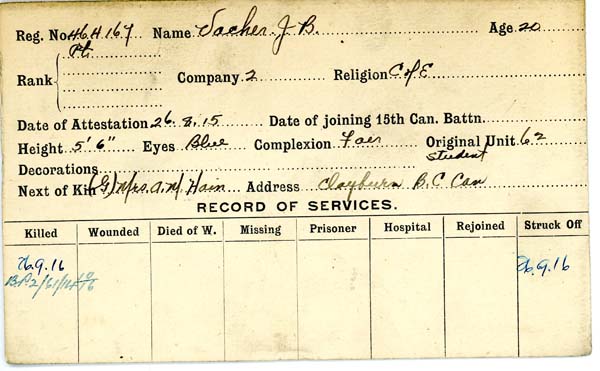 Reg. No. 464167 Name Vacher J. B. Age 20
Pt.
Rank Company 2 Religion C of E
Date of Attestation 26.8.15 Date of joining 15th Can. Battn.
Height 5' 6" Eyes Blue Complexion Fair Original Unit 62
Student
Decorations
Next of Kin (G) Mrs. A. M. Hain Address Clayburn B. C. Can
RECORD OF SERVICES.
Killed Wounded Died of W. Missing Prisoner Hospital Rejoined Struck Off
26.9.16 26.9.16